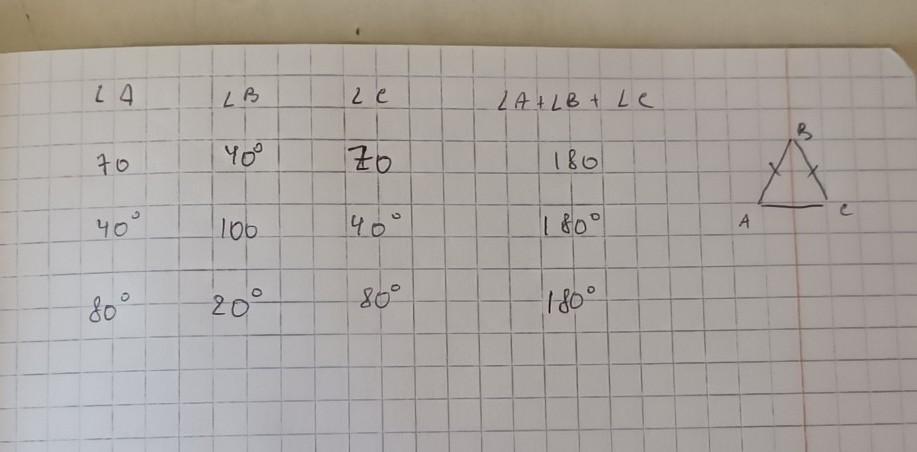 ∠A ∠B ∠C ∠A+∠B+ ∠C
B
70 40° 70 180
A C
40° 100 40° 180°
80° 20° 80° 180°